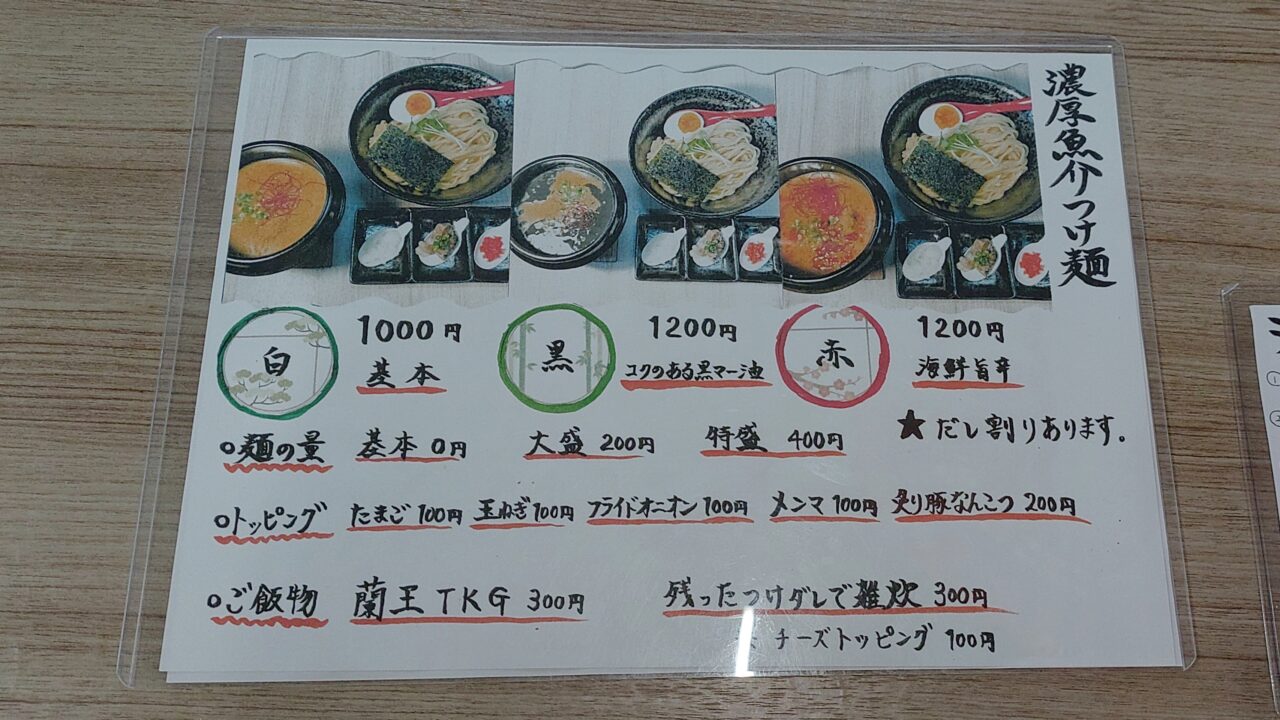 濃厚魚介つけ麺
白 1000円 基本
黒 1200円 コクのある黒マー油
赤 1200円 海鮮旨辛
★だし割りあります。
○麺の量 基本 0円 大盛 200円 特盛 400円
○トッピング たまご 100円 玉ねぎ 100円 フライドオニオン 100円 メンマ 100円 炙り豚なんこつ 200円
○ご飯物 蘭王TKG 300円 残ったつけダレで雑炊 300円
チーズトッピング 100円